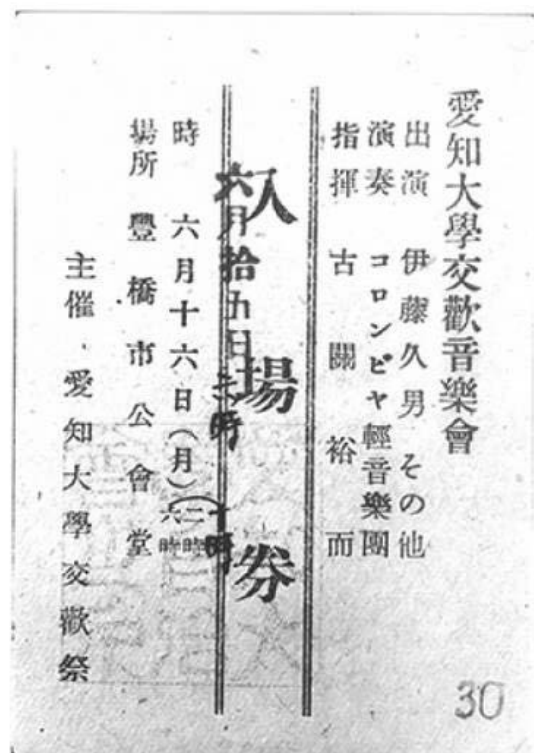 愛知大學交歡音樂會
出演 伊藤久男 その他
演奏 コロンビヤ輕音樂團
指揮 古關裕而
入場券
六月拾五日
時 六月十六日(月)
二時
六時
場所 豐橋市公會堂
主催、愛知大學交歡祭
30